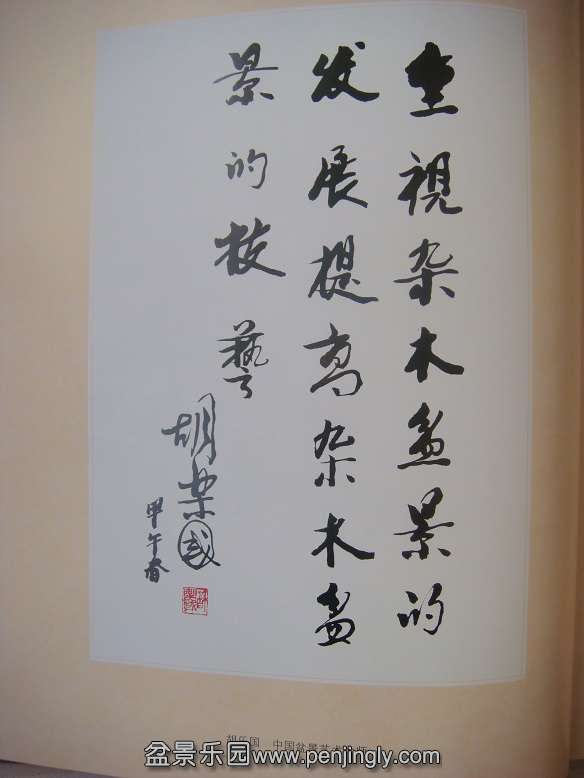 重視杂木盆景的
发展提高杂木盆
景的技藝
胡樂国
甲午春
胡乐国 中国盆景艺术大师
盆景乐园www.penjingly.com